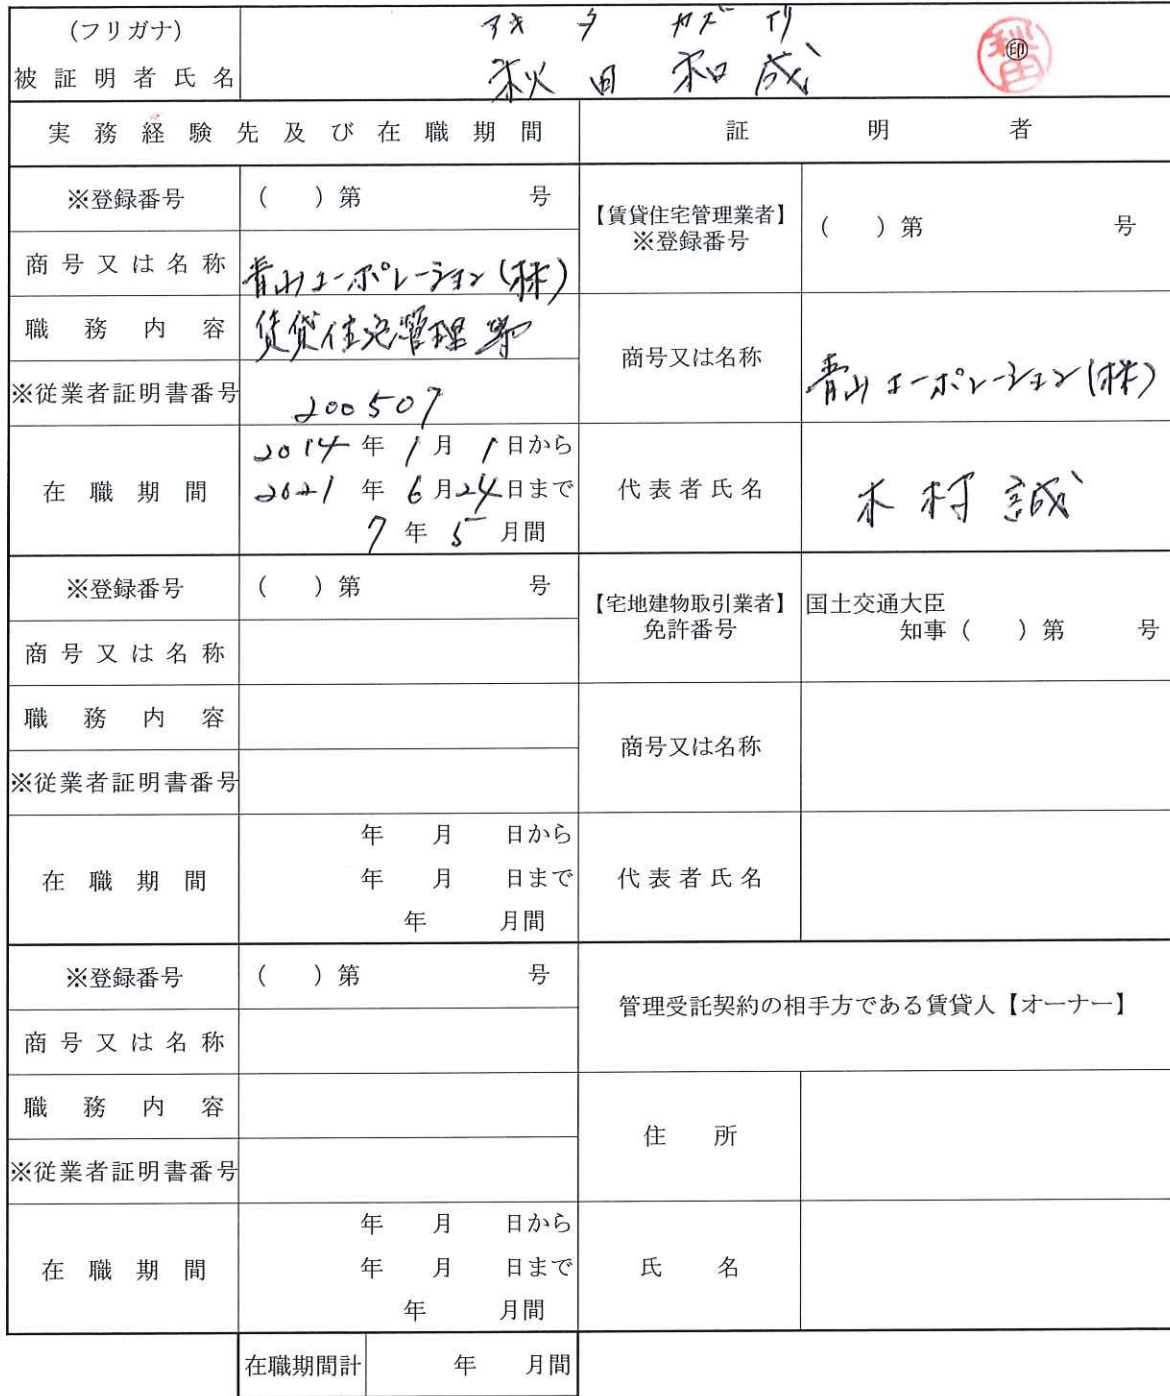 (フリガナ) アキタ カズナリ
被証明者氏名 秋田和成 ㊞ 秋田
実務経験先及び在職期間 証明者
※登録番号 ( )第 号
【賃貸住宅管理業者】
※登録番号 ( )第 号
商号又は名称 青山コーポレーション(株)
職務内容 賃貸住宅管理 等
商号又は名称 青山コーポレーション(株)
※従業者証明書番号 200507
在職期間 2014年1月1日から
2021年6月24日まで
7年5月間
代表者氏名 木村誠
※登録番号 ( )第 号
【宅地建物取引業者】
免許番号
国土交通大臣
知事( )第 号
商号又は名称
職務内容
商号又は名称
※従業者証明書番号
在職期間 年 月 日から
年 月 日まで
年 月間
代表者氏名
※登録番号 ( )第 号
管理受託契約の相手方である賃貸人【オーナー】
商号又は名称
職務内容
住所
※従業者証明書番号
在職期間 年 月 日から
年 月 日まで
年 月間
氏名
在職期間計 年 月間